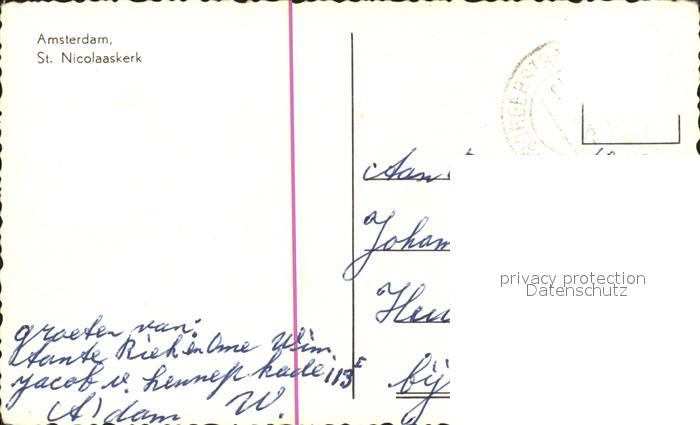 Amsterdam,
St. Nicolaaskerk
Aan
Johan
privacy protection
Datenschutz
bij
groeten van:
tante Riek en Ome Wim
Jacob v. Lennep kade 113 I
A)dam W.